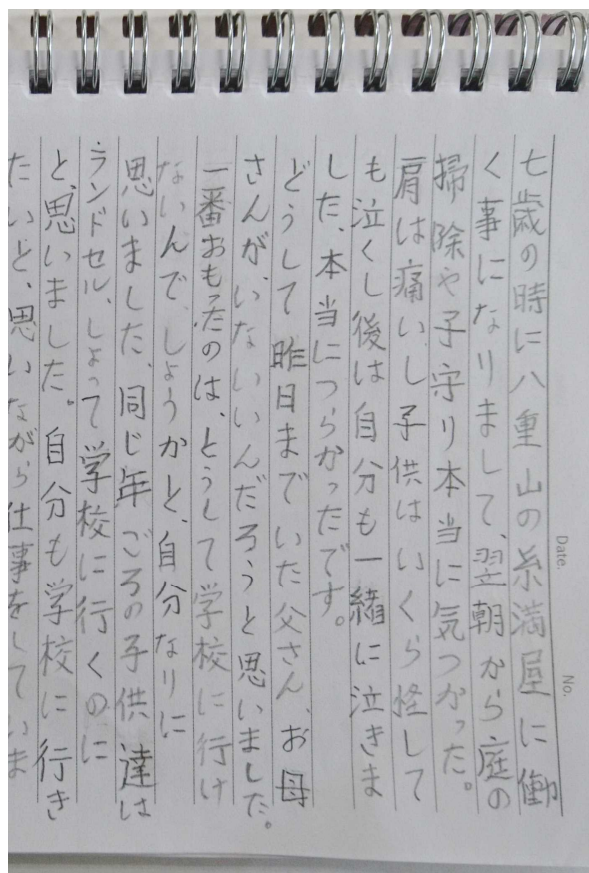 七歳の時に八重山の糸満屋に働
く事になりまして、翌朝から庭の
掃除や子守り本当に気つかった。
肩は痛いし子供はいくら怪して
も泣くし後は自分も一緒に泣きま
した、本当につらかったです。
どうして昨日までいた父さん、お母
さんが、いないいんだろうと思いました。
一番おもったのは、とうして学校に行け
ないんで、しょうかと、自分なりに
思いました、同じ年ごろの子供達は
ランドセル、しょって学校に行くのに
と、思いました。自分も学校に行き
たいと、思いながら仕事をしていま
Date.
No.